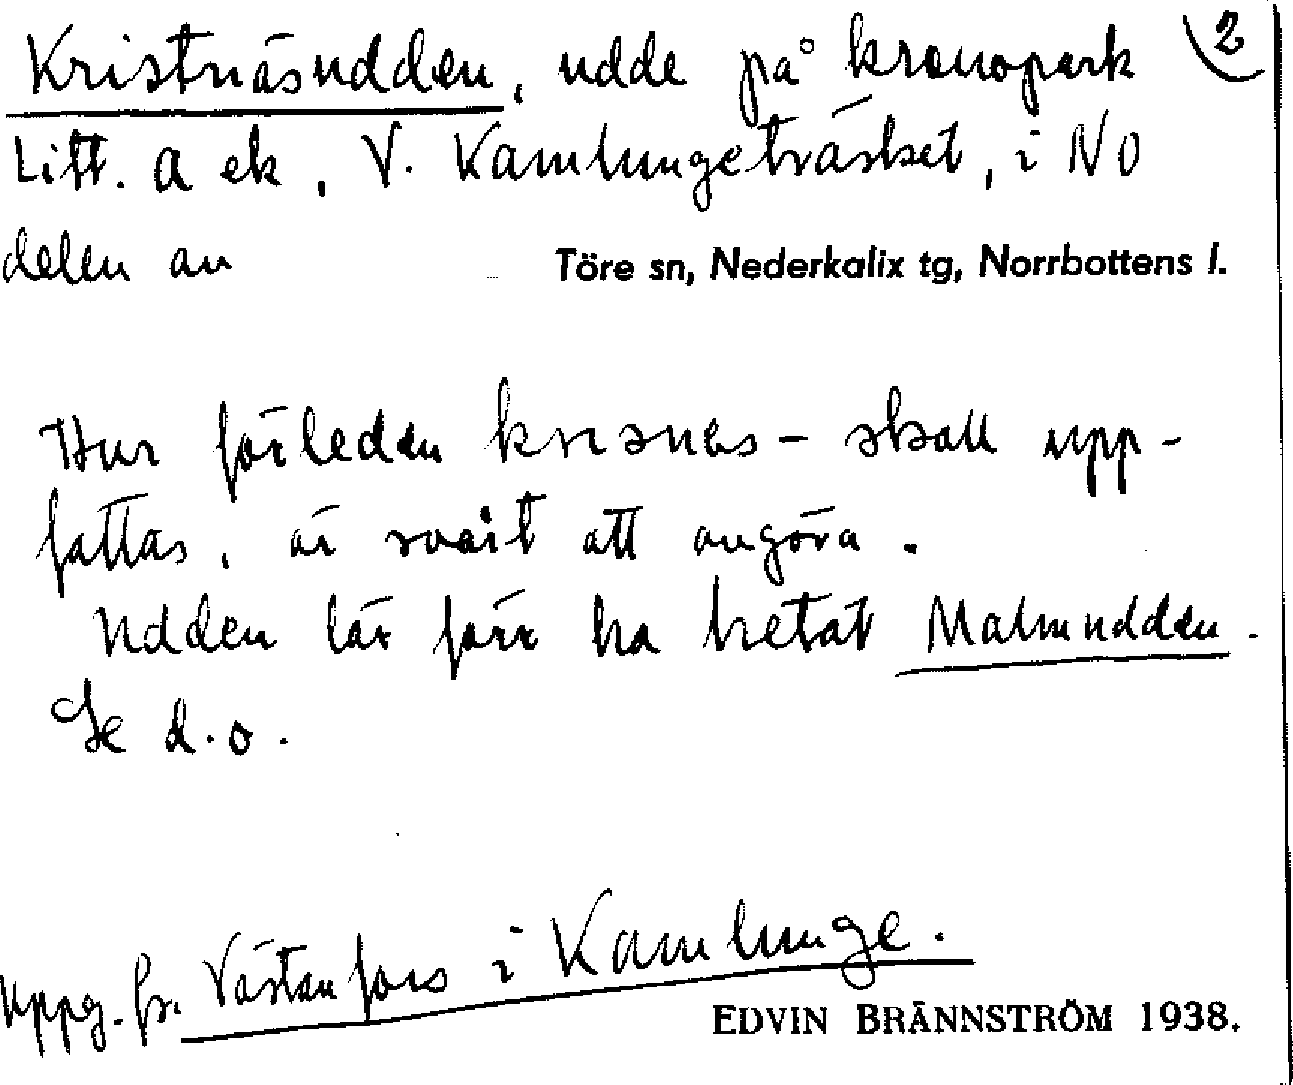 Kristnäsudden, udde på kronopark 2
Litt. a ek, V. Kamlungeträsket, i NO
delen av
Töre sn, Nederkalix tg, Norrbottens l.
Hur förleden krısnɛs- skall upp-
fattas, är svårt att avgöra.
Udden lär förr ha hetat Malmudden.
Se d.o.
Uppg. fr. Västanfors i Kamlunge.
EDVIN BRÄNNSTRÖM 1938.